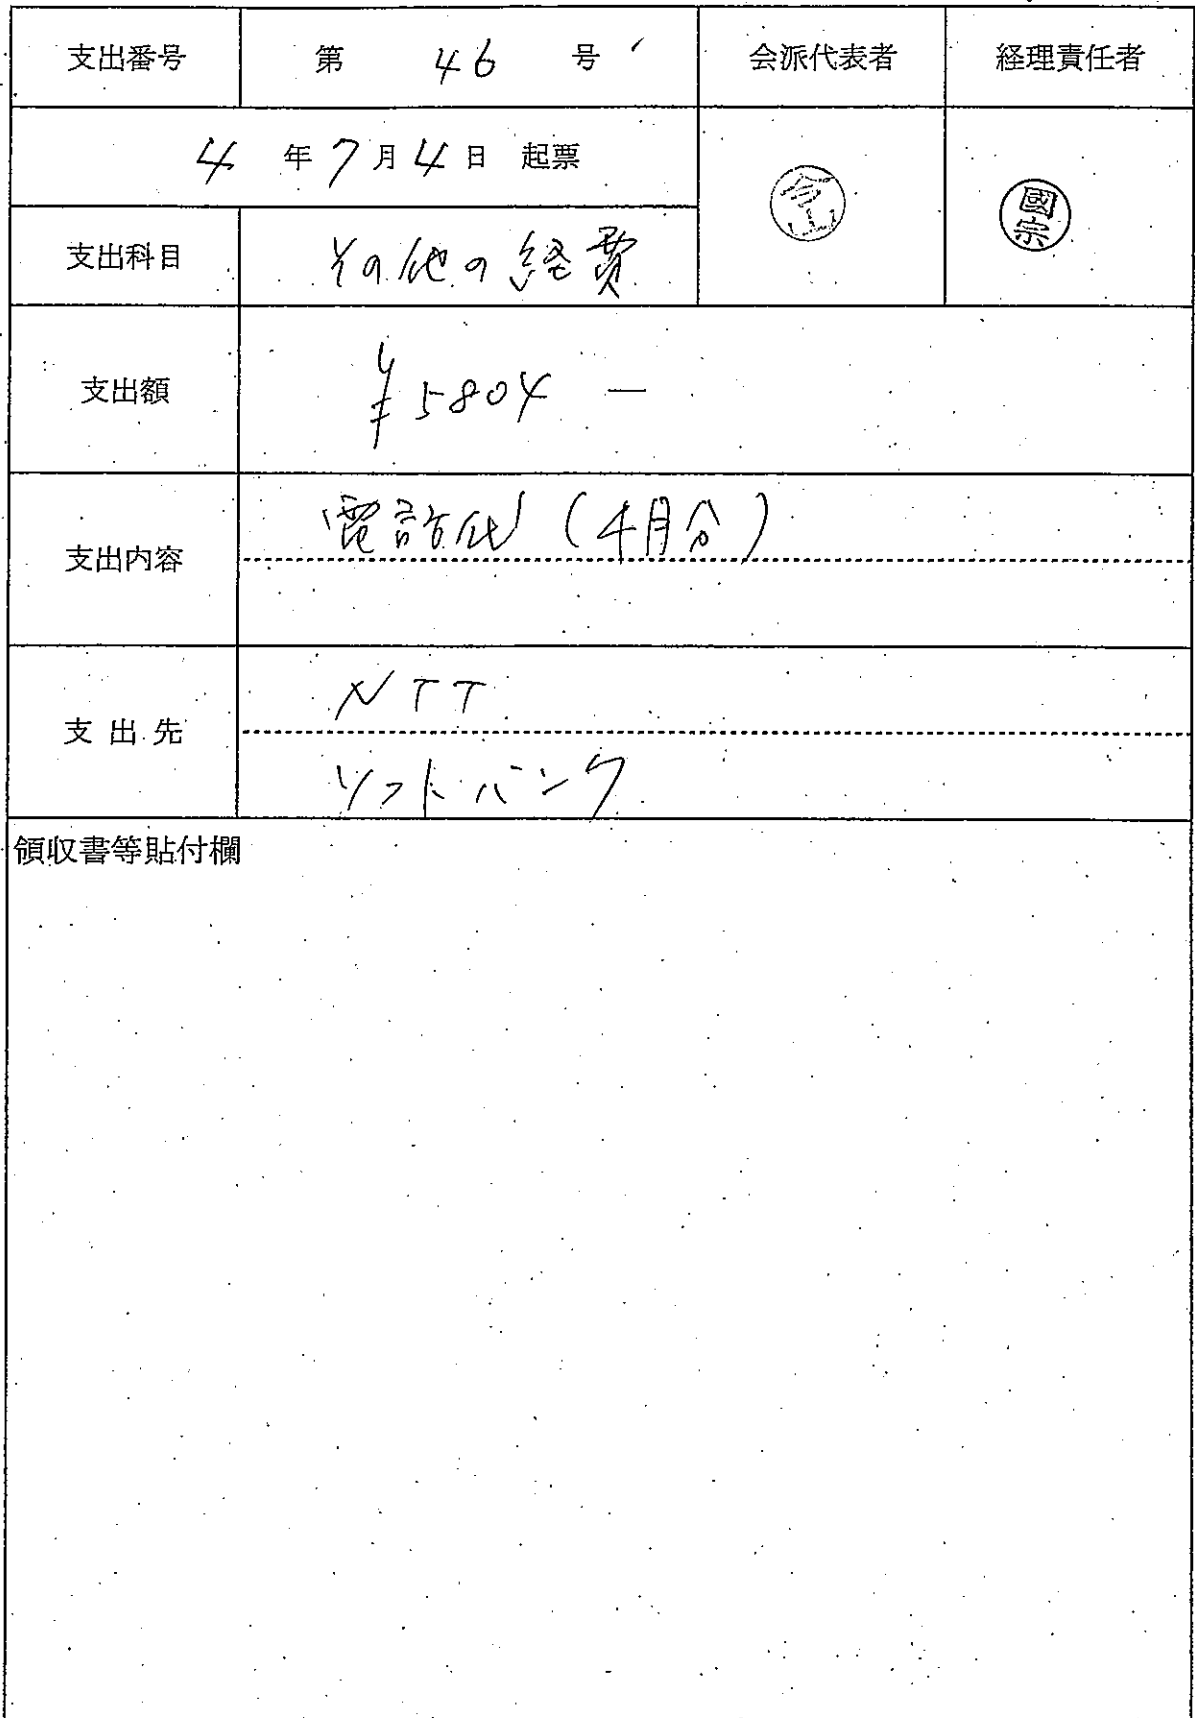 支出番号 第 46 号 会派代表者 経理責任者
4 年 7 月 4 日 起票
國宗
支出科目 その他の経費
支出額 ¥5804 ―
支出内容 電話代 (4月分)
支出先 NTT
ソフトバンク
領収書等貼付欄